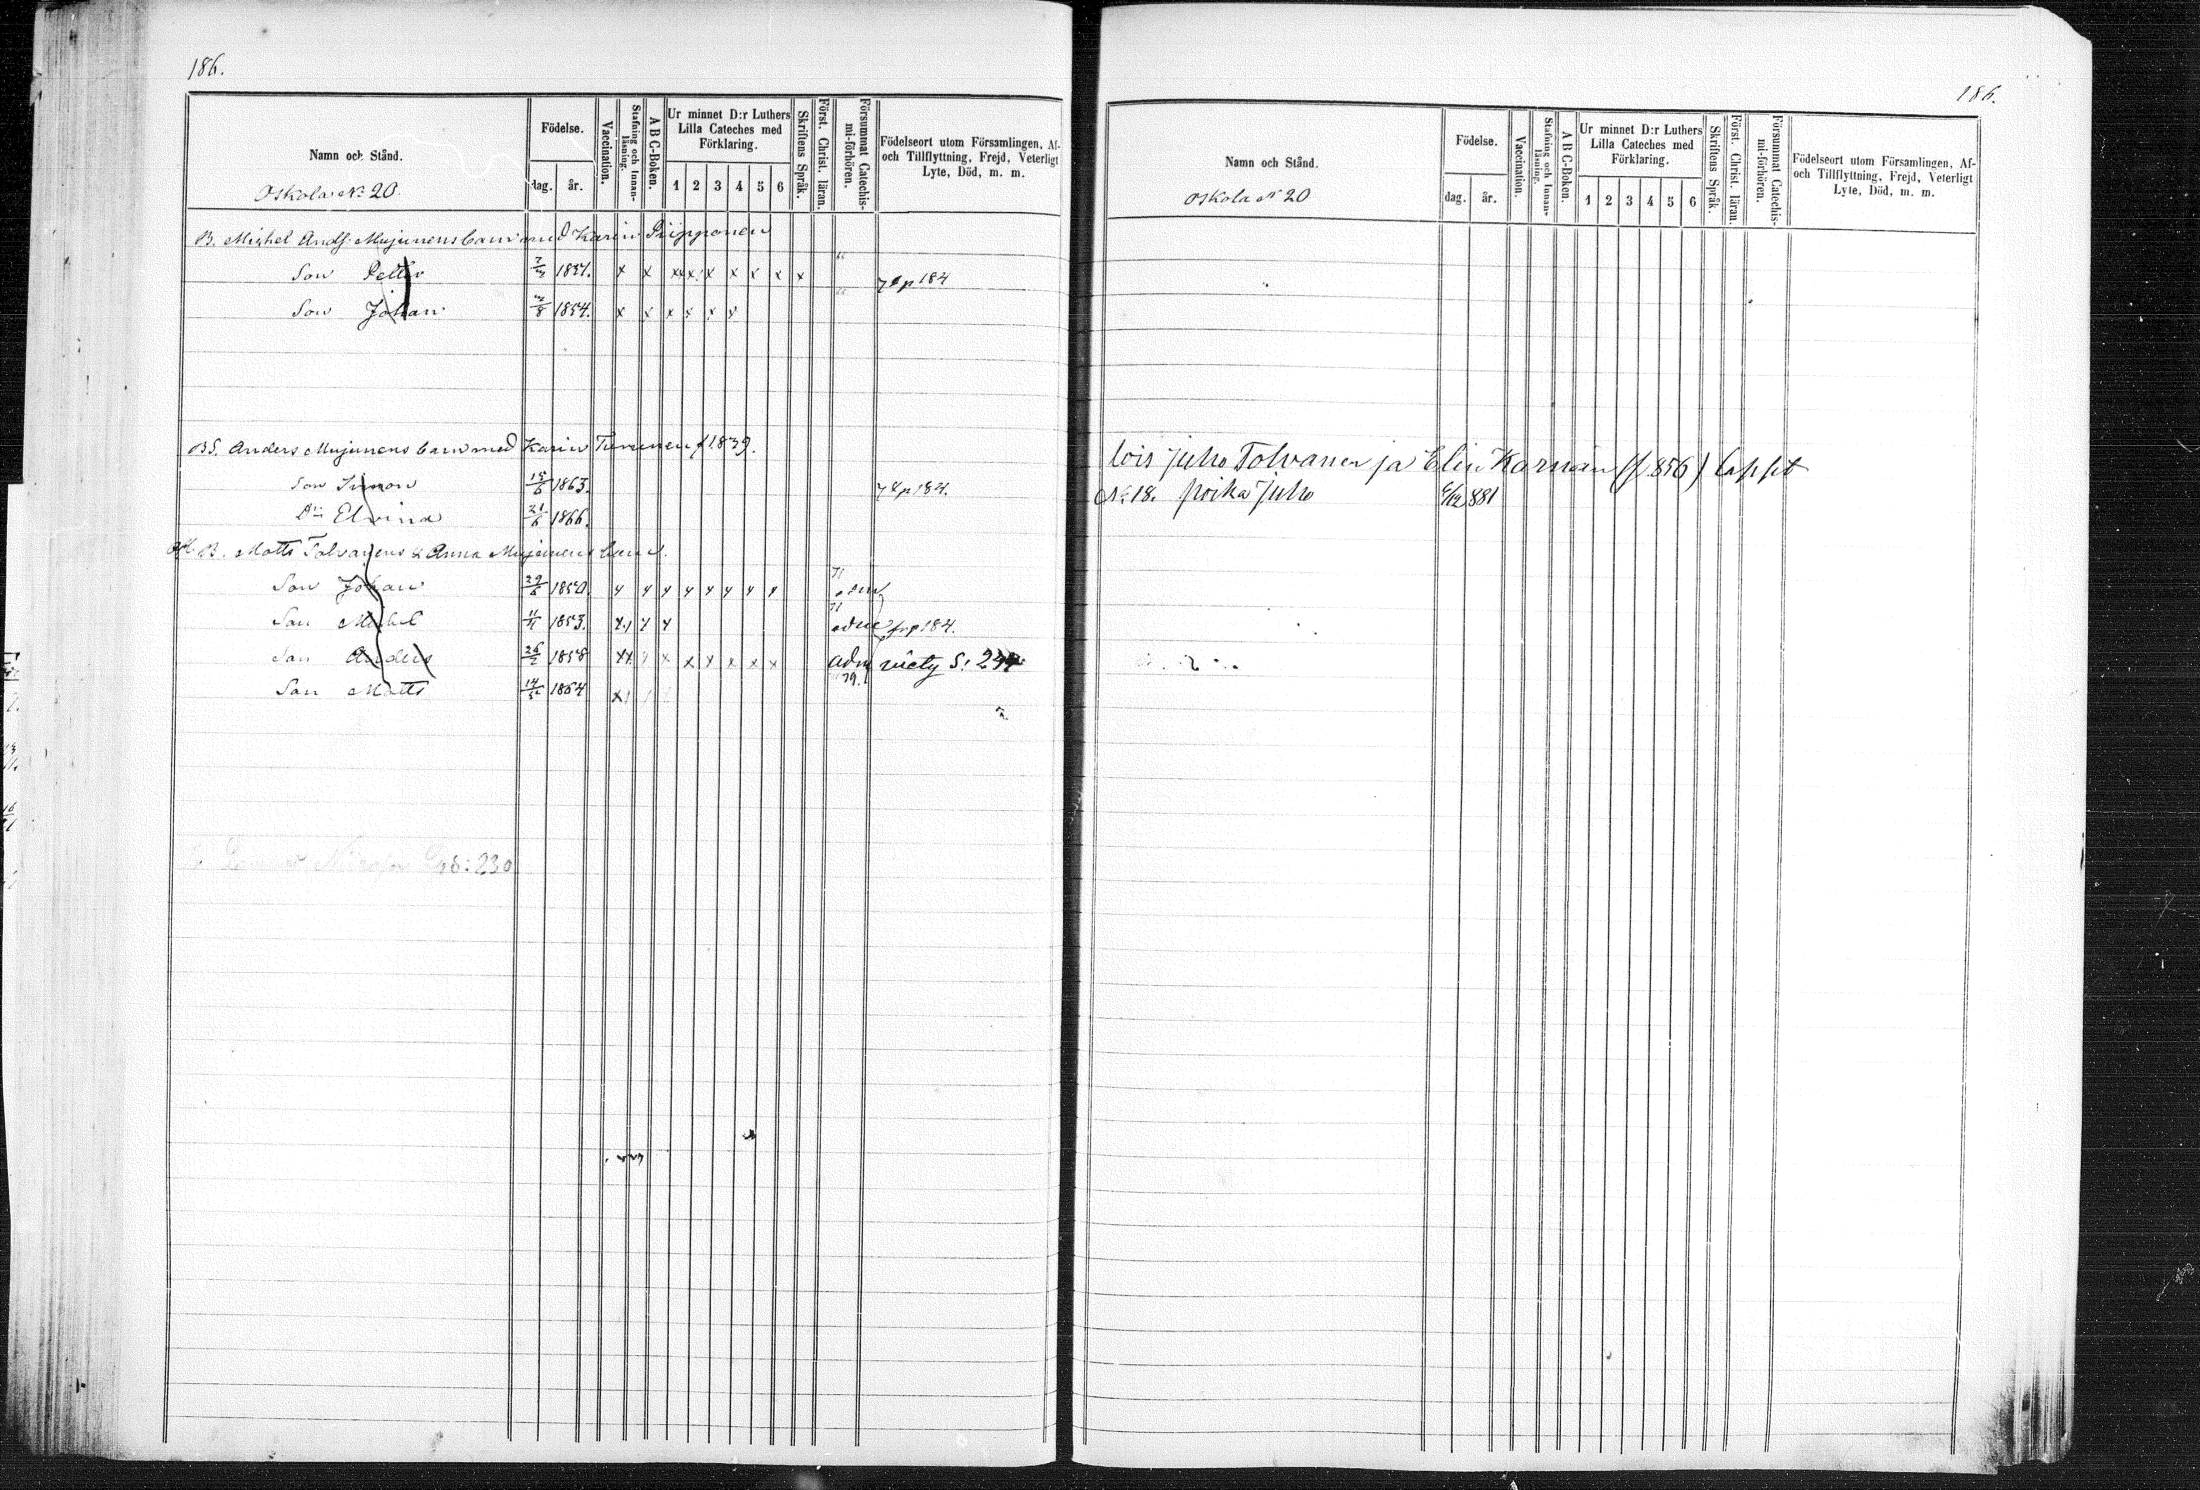 186.
Namn och Stånd.
Oskola No 20.
Födelse.
dag. år.
Vaccination.
Stafning och Innan-läsning.
A B C-Boken.
Ur minnet D:r Luthers Lilla Cateches med Förklaring.
1 2 3 4 5 6
Skriftens Språk.
Först. Christ. läran.
Försummat Catechis-mi-förhören.
Födelseort utom Församlingen, Af- och Tillflyttning, Frejd, Veterligt Lyte, Död, m. m.
B. Michel Andf. Mujunens barn med Karin Piipponen
Son Petter 1851. x x x x x x x x x
Son Johan 1854. x x x x x x p 184
BS. Anders Mujunens barn med Karin Turunen f 1839.
Son Simon 15/6 1863. p 184.
Dr Elvina 21/6 1866.
B. Matts Tolvanens & Anna Mujunens barn.
Son Johan 29/6 1850. 71
Son Michel 11/11 1853. 71 p 184.
Son Anders 26/2 1858 adm 79.
Son Matts 1864
S: 230
186.
Namn och Stånd.
Oskola N 20
Födelse.
dag. år.
Vaccination.
Stafning och Innan-läsning.
A B C-Boken.
Ur minnet D:r Luthers Lilla Cateches med Förklaring.
1 2 3 4 5 6
Skriftens Språk.
Först. Christ. läran.
Försummat Catechis-mi-förhören.
Födelseort utom Församlingen, Af- och Tillflyttning, Frejd, Veterligt Lyte, Död, m. m.
lois Juho Tolvanen ja Elin Karnan (f. 856) lapset
No 18. poika Juho 6/12 881